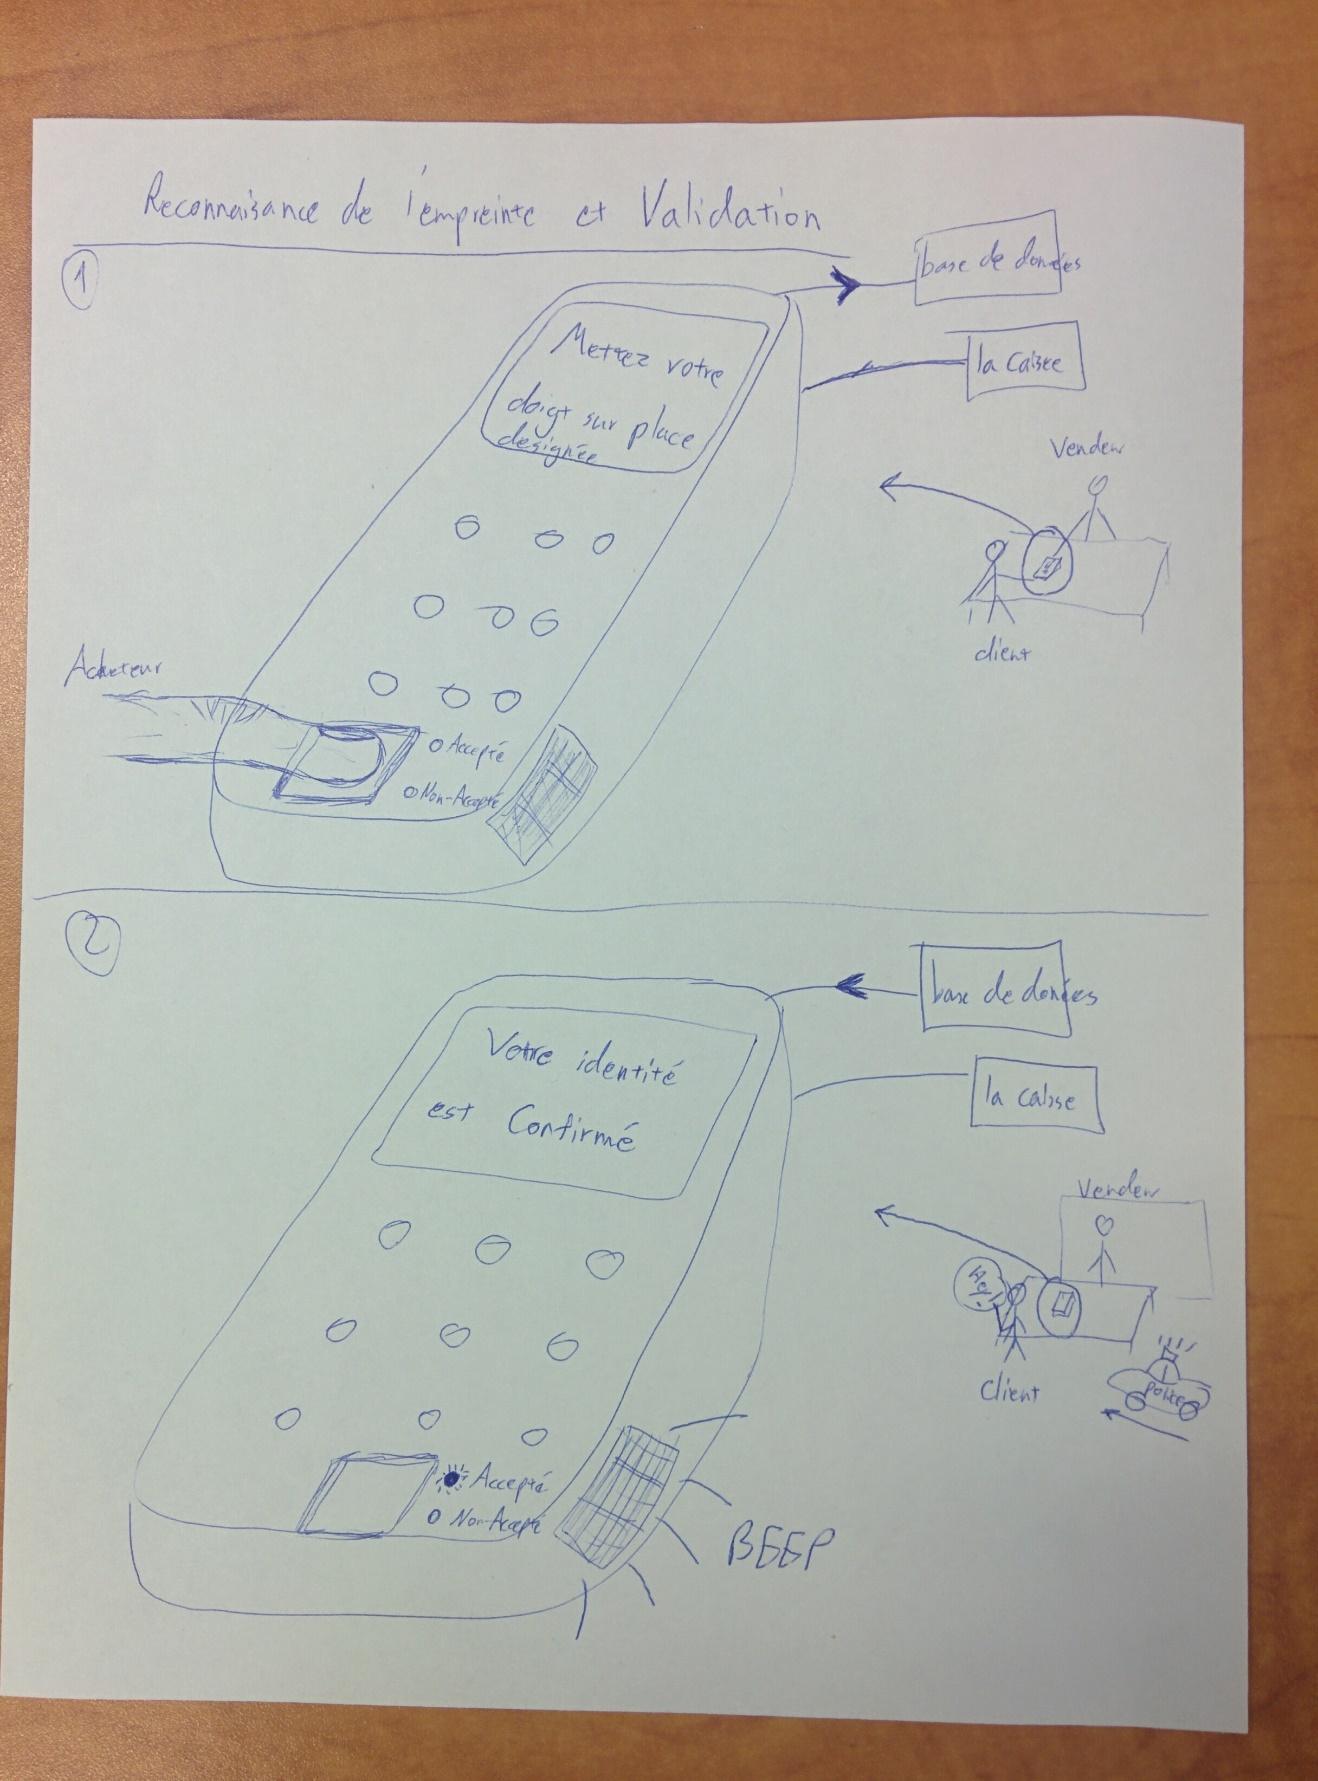 Reconnaisance de l'empreinte et Validation
1
base de données
Mettez votre
doigt sur place
designée
la caisse
Vendeur
client
Acheteur
Accepté
Non-Accepté
2
base de données
Votre identité
est Confirmé
la caisse
Vendeur
Client
Police
Accepté
Non-Accepté
BEEP